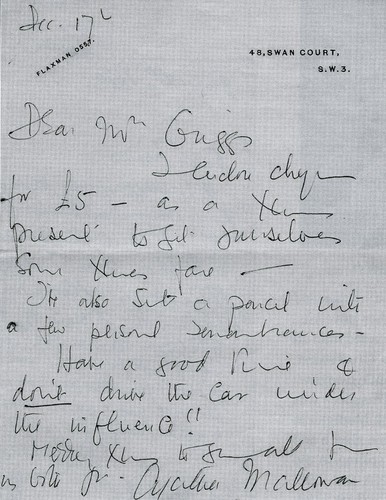 Dec. 17th
FLAXMAN 0559.
48, SWAN COURT,
S.W.3.
Dear Mrs Griggs
I enclose cheque
for £5 - as a Xmas
present to get yourselves
Some Xmas fare -
I've also sent a parcel with
a few personal remembrances -
Have a good time &
don't drive the car under
the influence!!
Merry Xmas to you all from
us both
Agatha Mallowan